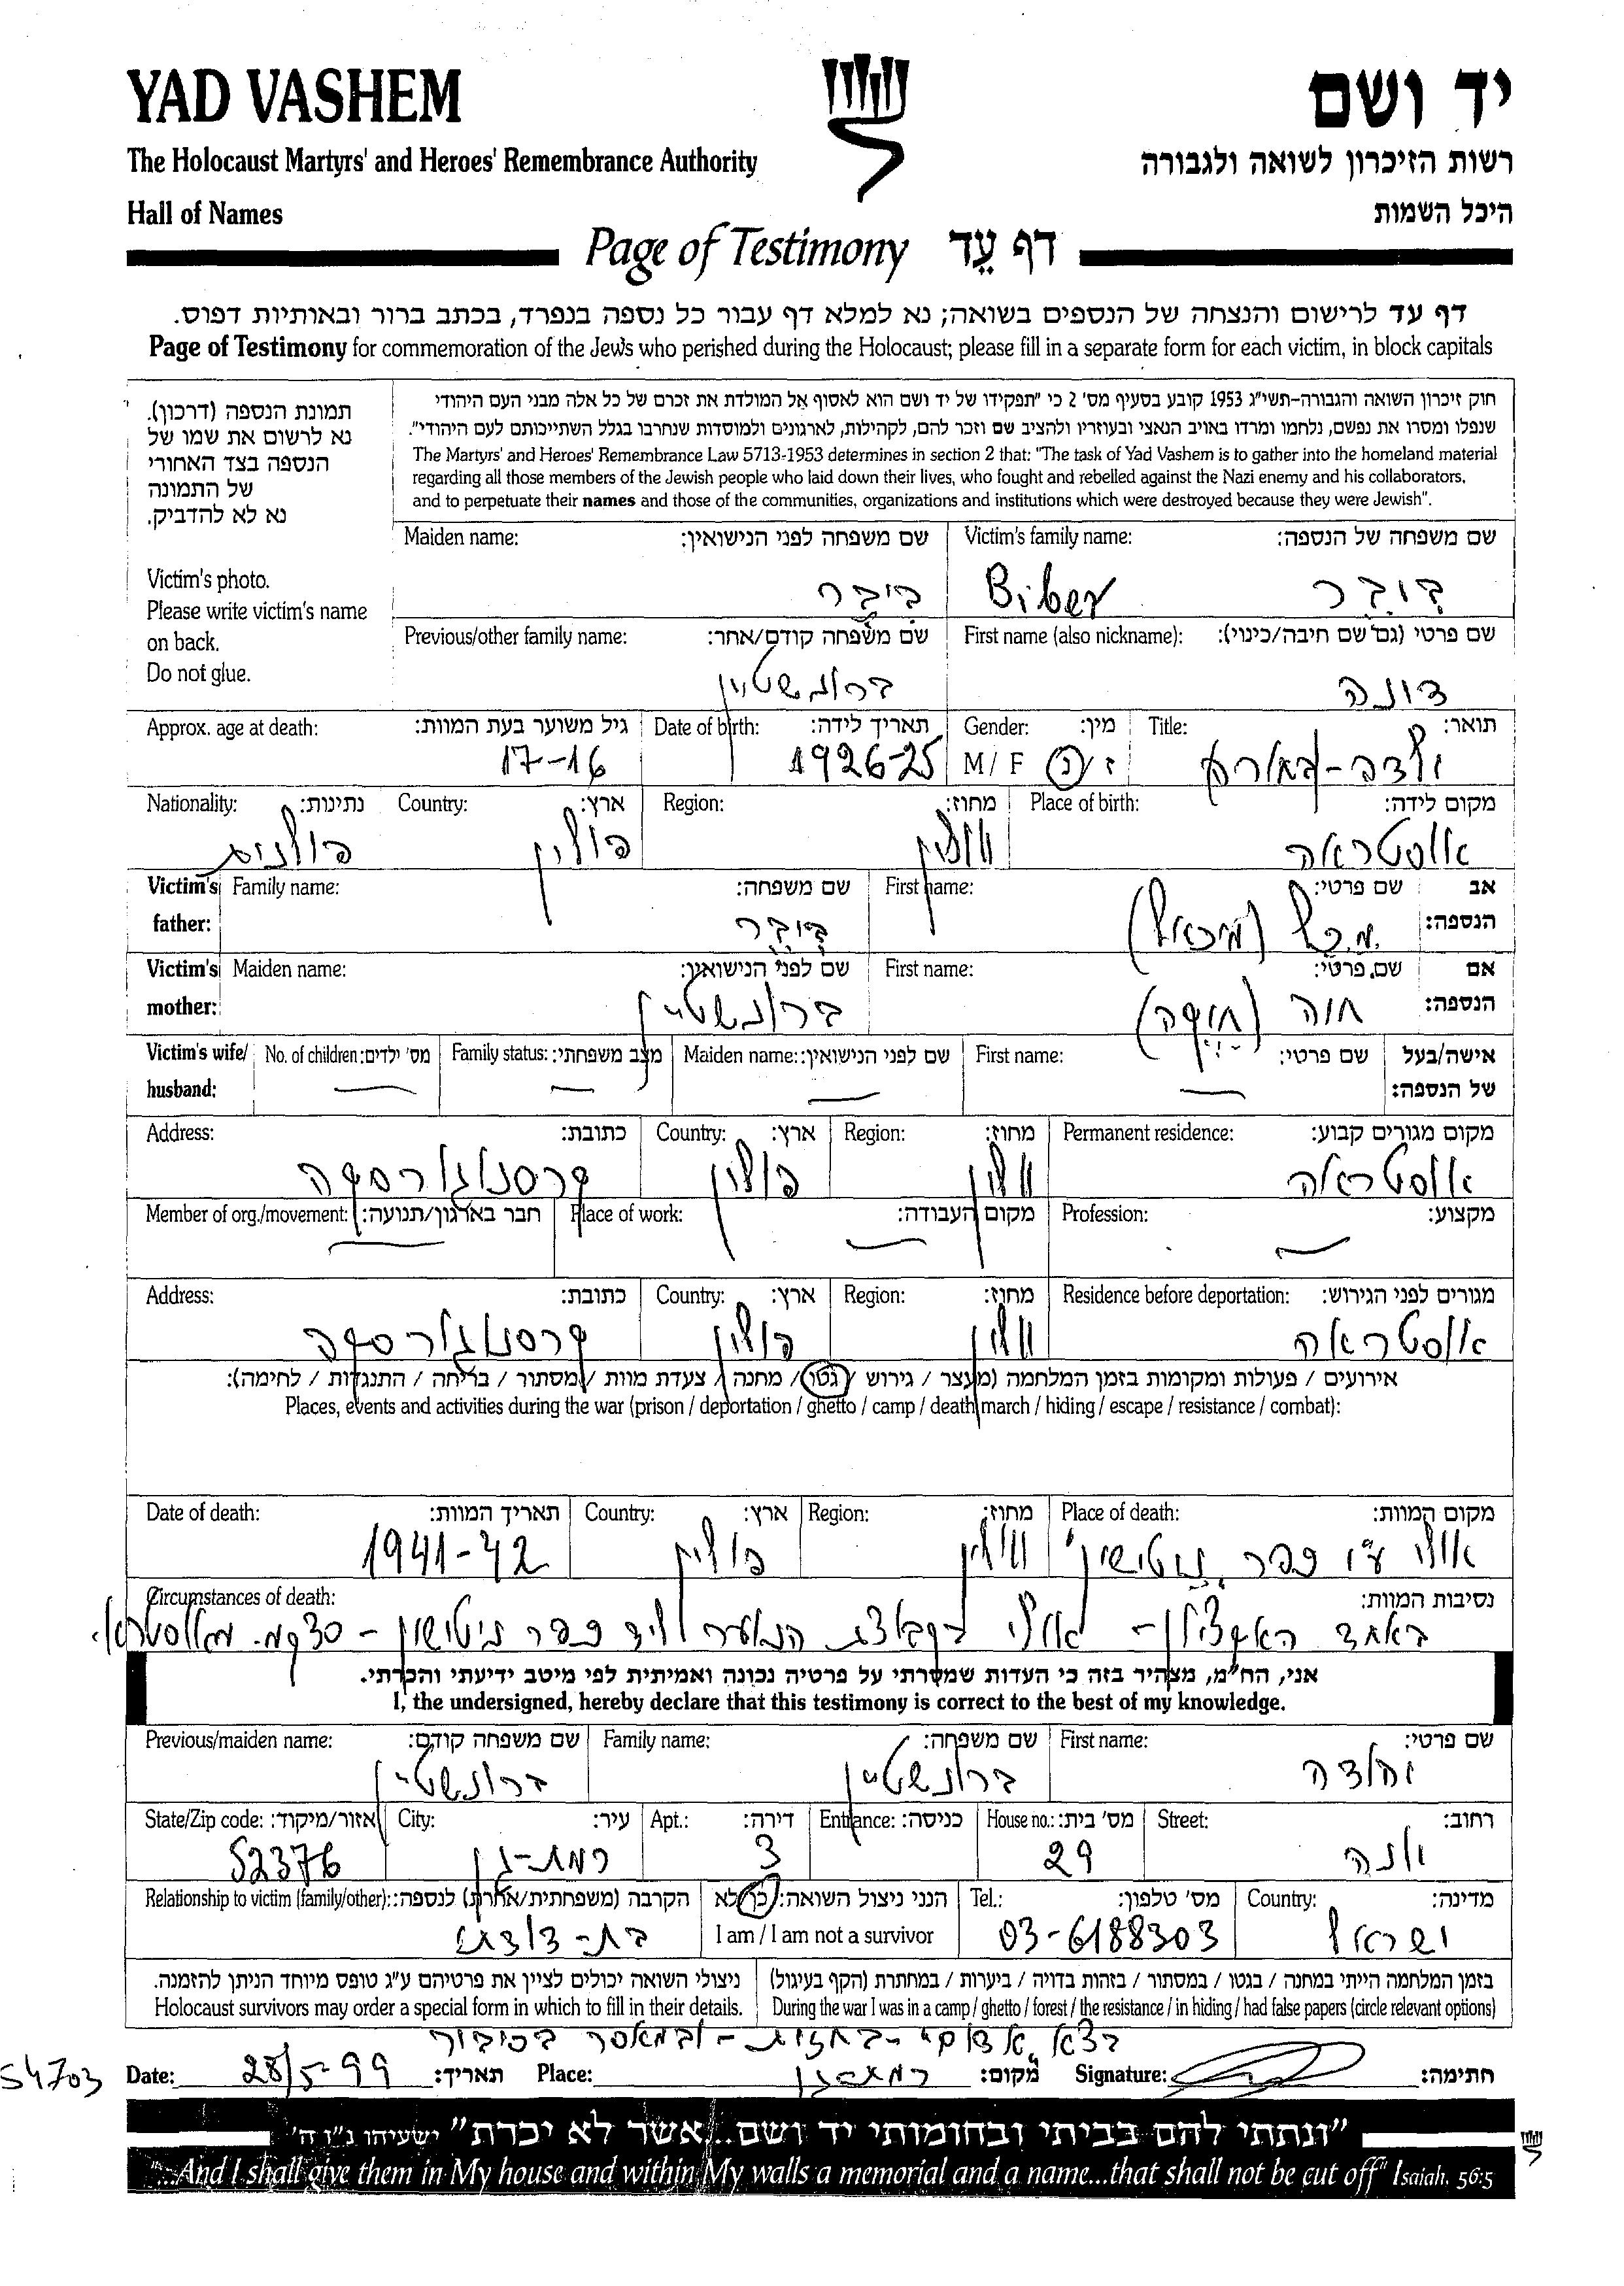 YAD VASHEM
יד ושם
The Holocaust Martyrs' and Heroes' Remembrance Authority
רשות הזיכרון לשואה ולגבורה
Hall of Names
היכל השמות
Page of Testimony דף עֵד
דף עד לרישום והנצחה של הנספים בשואה; נא למלא דף עבור כל נספה בנפרד, בכתב ברור ובאותיות דפוס.
Page of Testimony for commemoration of the Jews who perished during the Holocaust; please fill in a separate form for each victim, in block capitals
תמונת הנספה (דרכון).
נא לרשום את שמו של
הנספה בצד האחורי
של התמונה
נא לא להדביק.
Victim's photo.
Please write victim's name
on back.
Do not glue.
חוק זיכרון השואה והגבורה-תשי"ג 1953 קובע בסעיף מס' 2 כי "תפקידו של יד ושם הוא לאסוף אל המולדת את זכרם של כל אלה מבני העם היהודי
שנפלו ומסרו את נפשם, נלחמו ומרדו באויב הנאצי ובעוזריו ולהציב שם וזכר להם, לקהילות, לארגונים ולמוסדות שנחרבו בגלל השתייכותם לעם היהודי".
The Martyrs' and Heroes' Remembrance Law 5713-1953 determines in section 2 that: "The task of Yad Vashem is to gather into the homeland material
regarding all those members of the Jewish people who laid down their lives, who fought and rebelled against the Nazi enemy and his collaborators,
and to perpetuate their names and those of the communities, organizations and institutions which were destroyed because they were Jewish".
שם משפחה של הנספה: Victim's family name: שם משפחה לפני הנישואין: Maiden name:
ביבר Biber ביבר
שם פרטי (גם שם חיבה/כינוי): First name (also nickname): שם משפחה קודם/אחר: Previous/other family name:
דונה ברונשטיין
תואר: Title: מין: Gender: תאריך לידה: Date of birth: גיל משוער בעת המוות: Approx. age at death:
ילדה-נערה ז/נ M/F 1926-25 17-16
מקום לידה: Place of birth: מחוז: Region: ארץ: Country: נתינות: Nationality:
אוסטראה ווהלין פולין פולנית
אב הנספה: שם פרטי: First name: שם משפחה: Family name: Victim's father:
מיכל (מיכאל) ביבר
אם הנספה: שם פרטי: First name: שם לפני הנישואין: Maiden name: Victim's mother:
חוה ברונשטיין
אישה/בעל של הנספה: שם פרטי: First name: שם לפני הנישואין: Maiden name: מצב משפחתי: Family status: מס' ילדים: No. of children: Victim's wife/ husband:
מקום מגורים קבוע: Permanent residence: מחוז: Region: ארץ: Country: כתובת: Address:
אוסטראה ווהלין פולין
מקצוע: Profession: מקום העבודה: Place of work: חבר בארגון/תנועה: Member of org./movement:
מגורים לפני הגירוש: Residence before deportation: מחוז: Region: ארץ: Country: כתובת: Address:
אוסטראה ווהלין פולין
אירועים / פעולות ומקומות בזמן המלחמה (מעצר / גירוש / גטו / מחנה / צעדת מוות / מסתור / בריחה / התנגדות / לחימה):
Places, events and activities during the war (prison / deportation / ghetto / camp / death march / hiding / escape / resistance / combat):
מקום המוות: Place of death: מחוז: Region: ארץ: Country: תאריך המוות: Date of death:
אולי ע"י כפר ווהלין פולין 1941-42
נסיבות המוות: Circumstances of death:
באחד האקציות - אולי בקבוצת הנוער ליד כפר
אני, הח"מ, מצהיר בזה כי העדות שמסרתי על פרטיה נכונה ואמיתית לפי מיטב ידיעתי והכרתי.
I, the undersigned, hereby declare that this testimony is correct to the best of my knowledge.
שם פרטי: First name: שם משפחה: Family name: שם משפחה קודם: Previous/maiden name:
ברונשטיין ברונשטיין
רחוב: Street: מס' בית: House no.: כניסה: Entrance: דירה: Apt.: עיר: City: אזור/מיקוד: State/Zip code:
29 3 רמת-גן 52376
מדינה: Country: מס' טלפון: Tel.: הנני ניצול השואה: כן/לא I am / I am not a survivor הקרבה (משפחתית/אחרת) לנספה: Relationship to victim (family/other):
ישראל 03-6188303 בת-דודה
בזמן המלחמה הייתי במחנה / בגטו / במסתור / בזהות בדויה / ביערות / במחתרת (הקף בעיגול)
During the war I was in a camp / ghetto / forest / the resistance / in hiding / had false papers (circle relevant options)
ניצולי השואה יכולים לציין את פרטיהם ע"ג טופס מיוחד הניתן להזמנה.
Holocaust survivors may order a special form in which to fill in their details.
54703 Date: 28/5-99 תאריך: Place: רמת גן מקום: Signature: חתימה:
"ונתתי להם בביתי ובחומותי יד ושם...אשר לא יכרת" ישעיהו נ"ו ה'
"...And I shall give them in My house and within My walls a memorial and a name...that shall not be cut off" Isaiah, 56:5